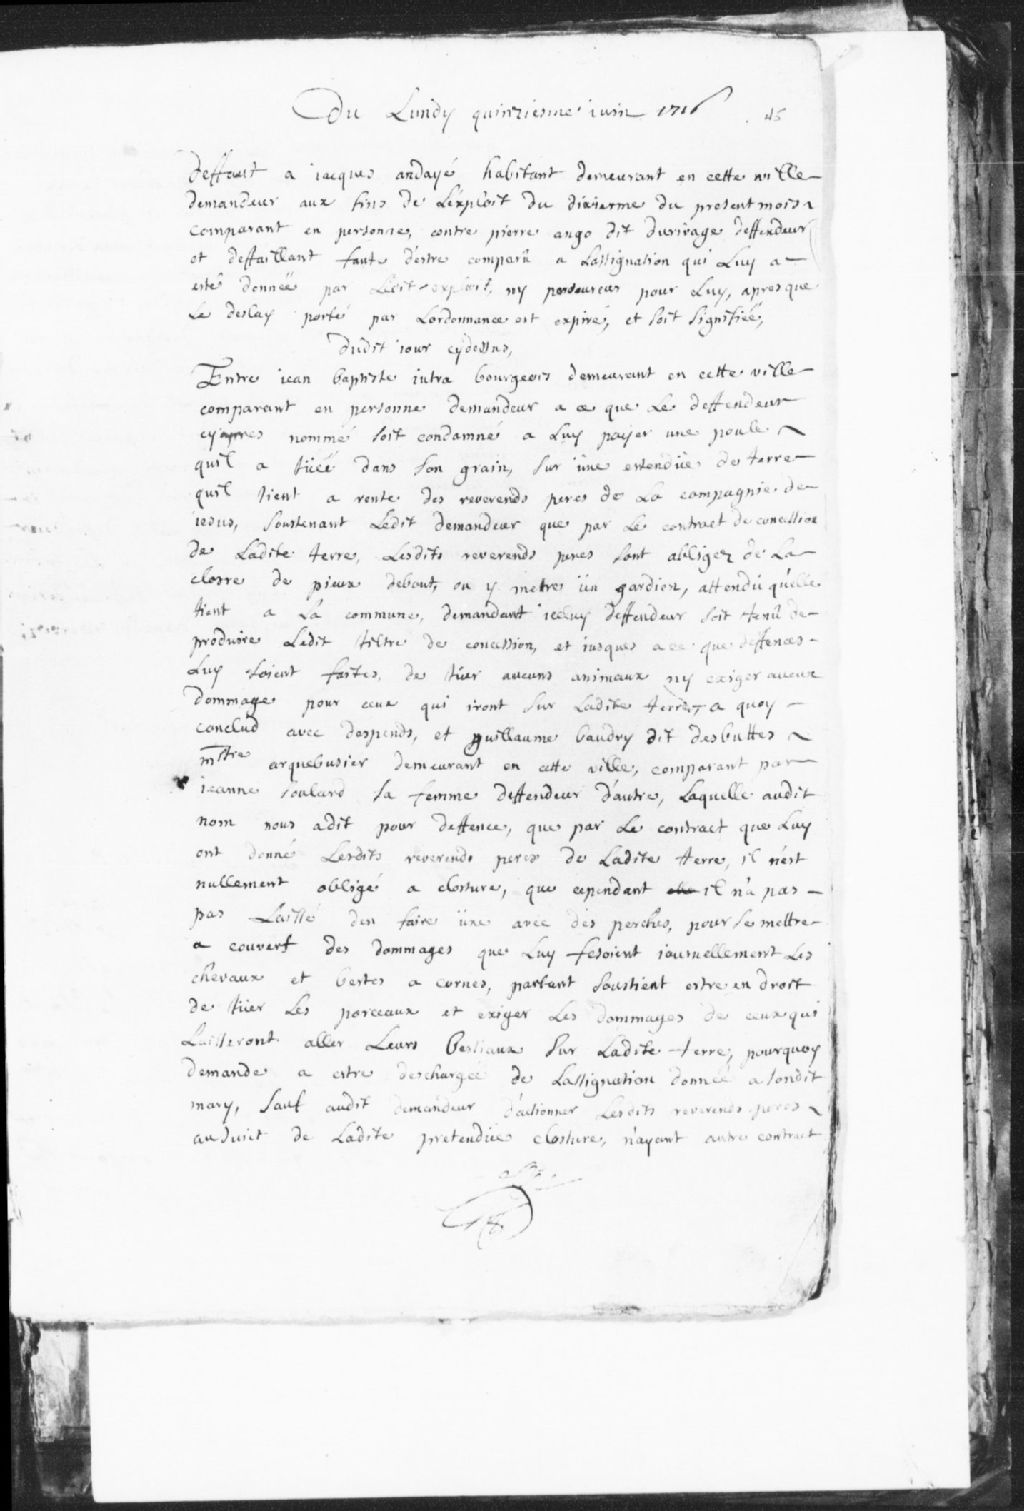 Du Lundy quinziesme iuin 1716
46
Deffaut a iacques andayé habitant demeurant en cette ville
demandeur aux fins de Lexploit du dixiesme du present mois
comparant en personne, contre pierre ango dit Durivage deffendeur
et deffaillant faute destre comparu a Lassignation qui Luy a
esté donnée par Ledit exploit, ny procureur pour Luy, apres que
Le deslay porté par Lordonnance est expiré, et soit signiffié,
Dudit iour cydessus,
Entre iean baptiste iutra bourgeois demeurant en cette ville
comparant en personne demandeur a ce que Le deffendeur
cyapres nommé soit condamné a Luy payer une poule
quil a tüéé dans son grain, sur üne estendüe de terre
quil tient a rente des reverends peres de La compagnie de
iesus, soustenant Ledit demandeur que par Le contract de concession
de Ladite terre, Lesdits reverends peres sont obligez de La
clorre de pieux debout, ou y metre ün gardien, attendu quelle
tient a La commune, demandant iceluy deffendeur soit tenü de
produire Ledit tiltre de concession, et iusques a ce que deffences
Luy soient faites, de tüer aucuns animaux ny exiger aucun
dommage pour ceux qui iront sur Ladite terre, a quoy
conclud avec despends, et guillaume baudry dit desbuttes
mtre arquebusier demeurant en cette ville, comparant par
ieanne soulard sa femme deffendeur d'autre, Laquelle audit
nom nous a dit pour deffence, que par Le contract que Luy
ont donné Lesdits reverends peres de Ladite terre, il n'est
nullement obligé a closture, que cependant il n'a pas
pas Laissé den faire üne avec des perches, pour se mettre
a couvert des dommages que Luy fesoient iournellement Les
chevaux et bestes a cornes, partant soustient estre en droit
de tüer Les porceaux et exiger Les dommages de ceux qui
Laisseront aller Leurs bestiaux sur Ladite terre, pourquoy
demande a estre deschargée de Lassignation donnée a sondit
mary, sauf audit demandeur d'actionner Lesdits reverends peres
au suiet de Ladite pretendüe closture, n'ayant autre contract